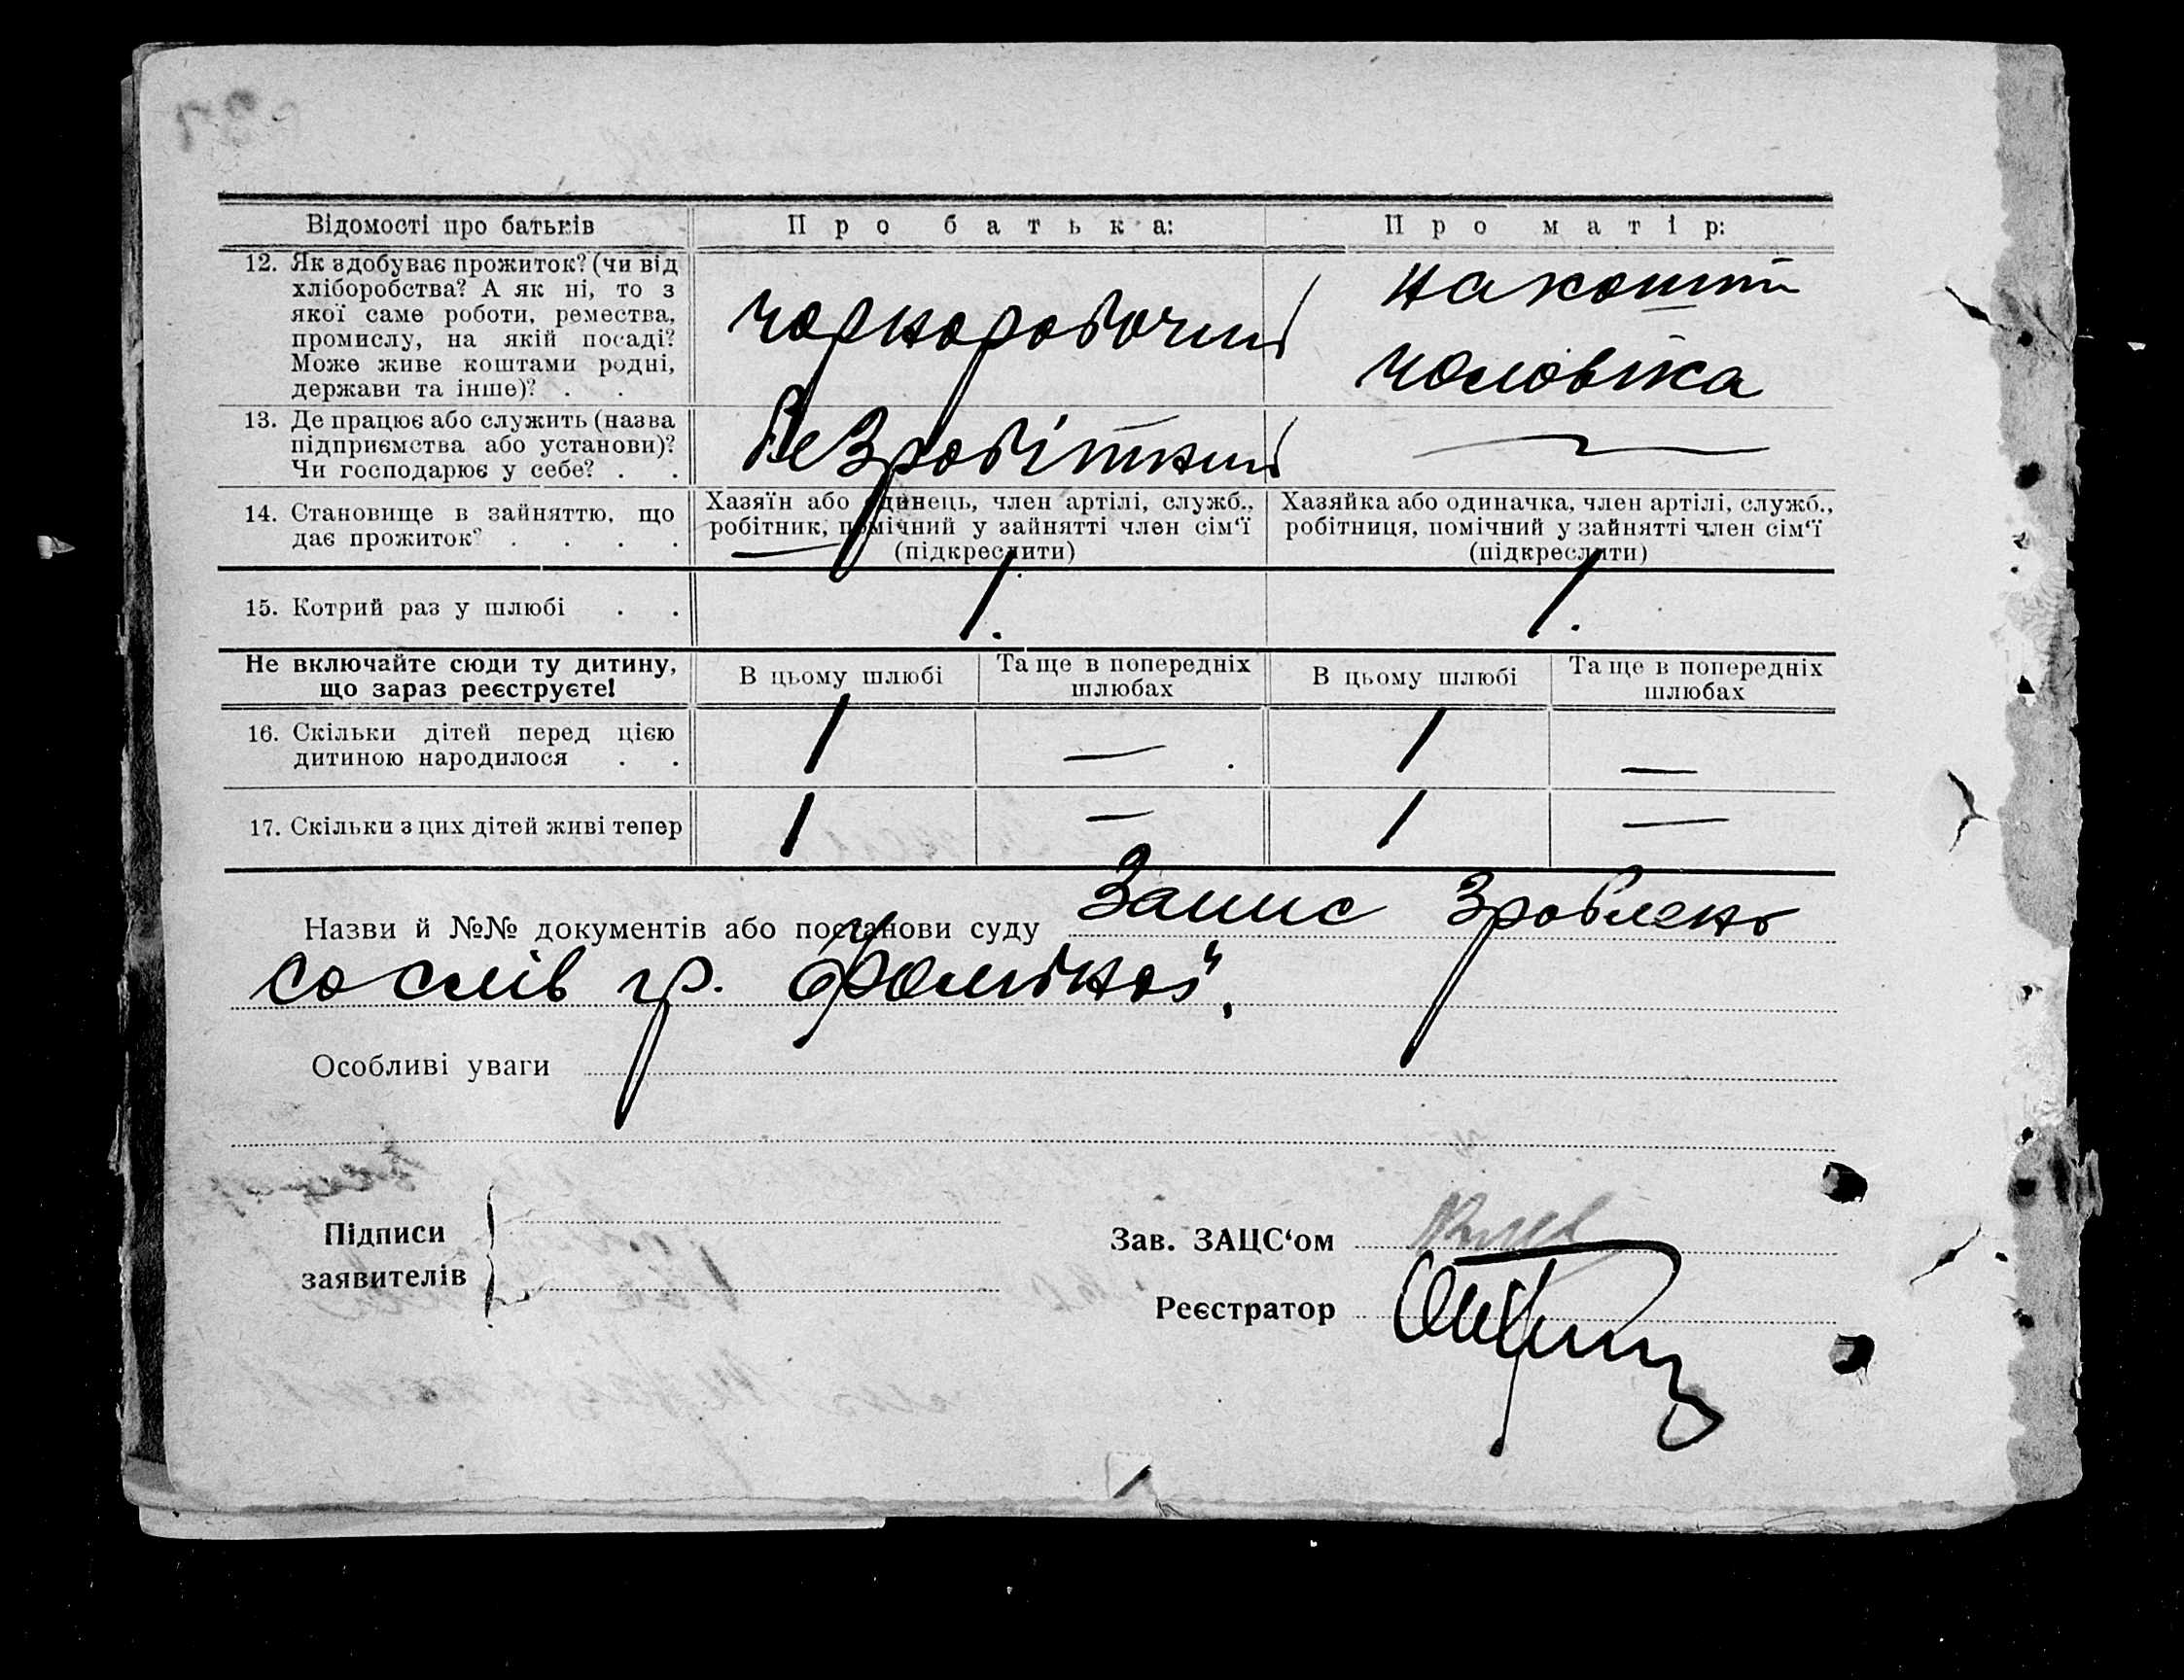 Відомості про батьків
Про батька:
Про матір:
12. Як здобуває прожиток? (чи від
хліборобства? А як ні, то з
якої саме роботи, ремества,
промислу, на якій посаді?
Може живе коштами родні,
держави та інше)? . .
чорноробочий
на кошти
чоловіка
13. Де працює або служить (назва
підприємства або установи)?
Чи господарює у себе? . .
Безробітний
—
14. Становище в зайняттю, що
дає прожиток? . . . .
Хазяїн або одинець, член артілі, служб.,
робітник, помічний у зайнятті член сім‘ї
(підкреслити)
Хазяйка або одиначка, член артілі, служб.,
робітниця, помічний у зайнятті член сім‘ї
(підкреслити)
15. Котрий раз у шлюбі . .
1.
1.
Не включайте сюди ту дитину,
що зараз реєструєте!
В цьому шлюбі
Та ще в попередніх
шлюбах
В цьому шлюбі
Та ще в попередніх
шлюбах
16. Скільки дітей перед цією
дитиною народилося . .
1
—
1
—
17. Скільки з цих дітей живі тепер
1
—
1
—
Назви й №№ документів або постанови суду Запис зроблено
со слів гр.
Особливі уваги
Підписи
заявителів
Зав. ЗАЦС‘ом
Реєстратор